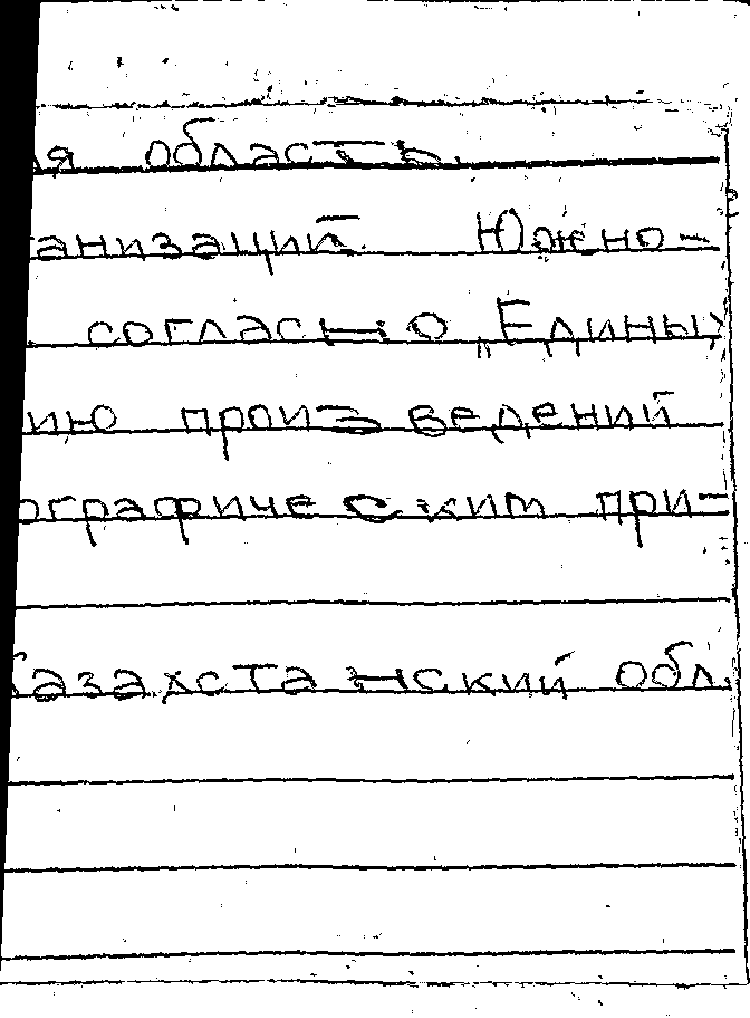 ая область.
анизаций Южно-
согласно „Единых
ию произведений
ографическим при-
Казахстанский обл.